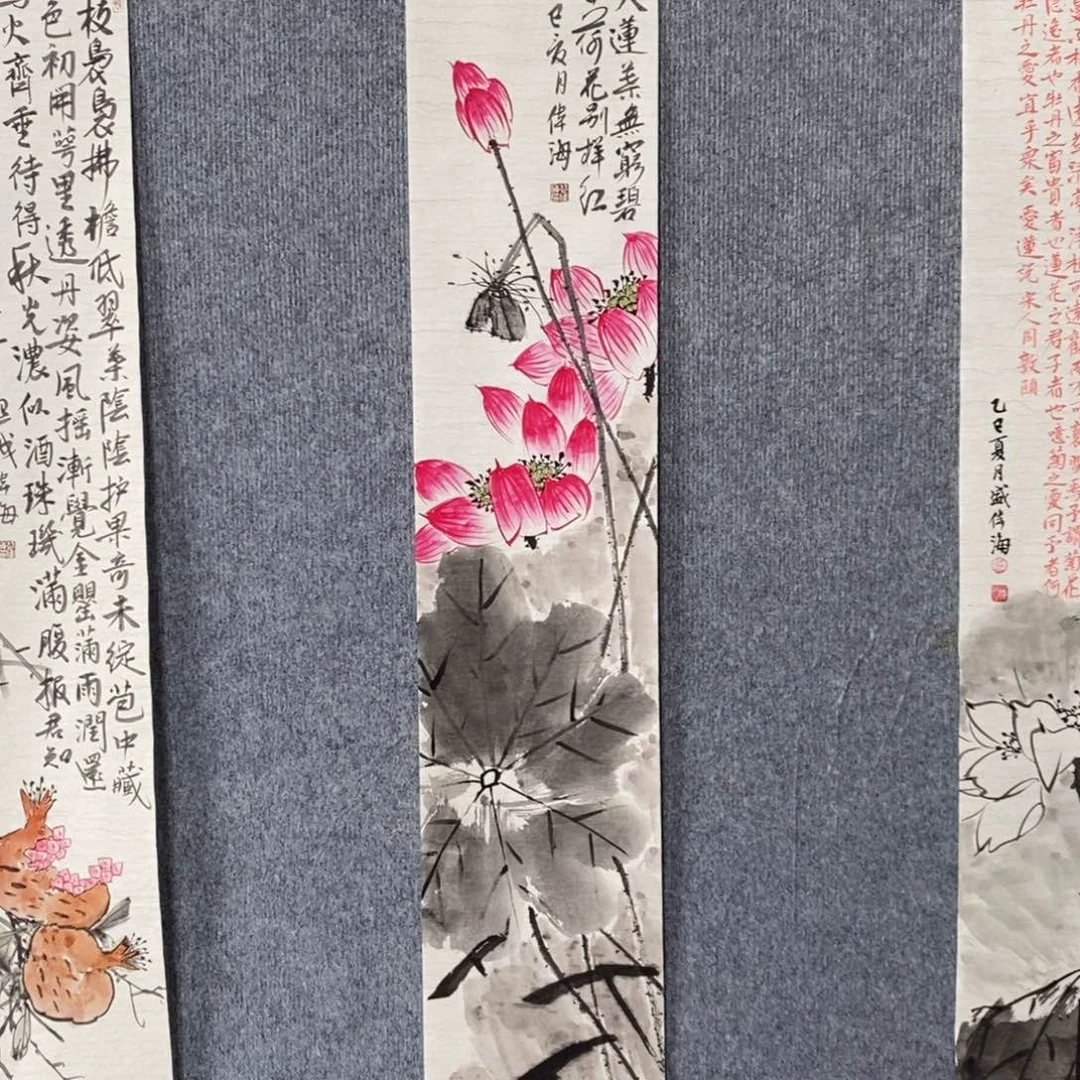 隱逸者也牡丹之富貴者也蓮花之君子者也噫菊之愛同予者何
牡丹之愛宜乎衆矣愛蓮說宋人周敦頤
乙巳夏月盛偉海
蓮葉無窮碧
荷花别样红
巳夏月偉海
枝裊裊拂檐低翠葉陰陰护果奇未綻苞中藏
色初開萼里透丹姿風摇漸覺金罌蒲雨潤還
火齊垂待得秋光濃似酒珠璣滿腹报君知